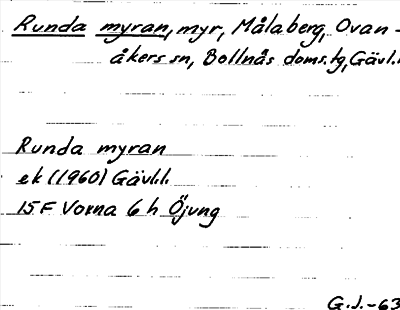 Runda myran, myr, Målaberg, Ovan-
åkers sn, Bollnäs doms.tg, Gävl.l.
Runda myran
ek (1960) Gävl.l.
15F Voxna 6 h Öjung
G.J.-63